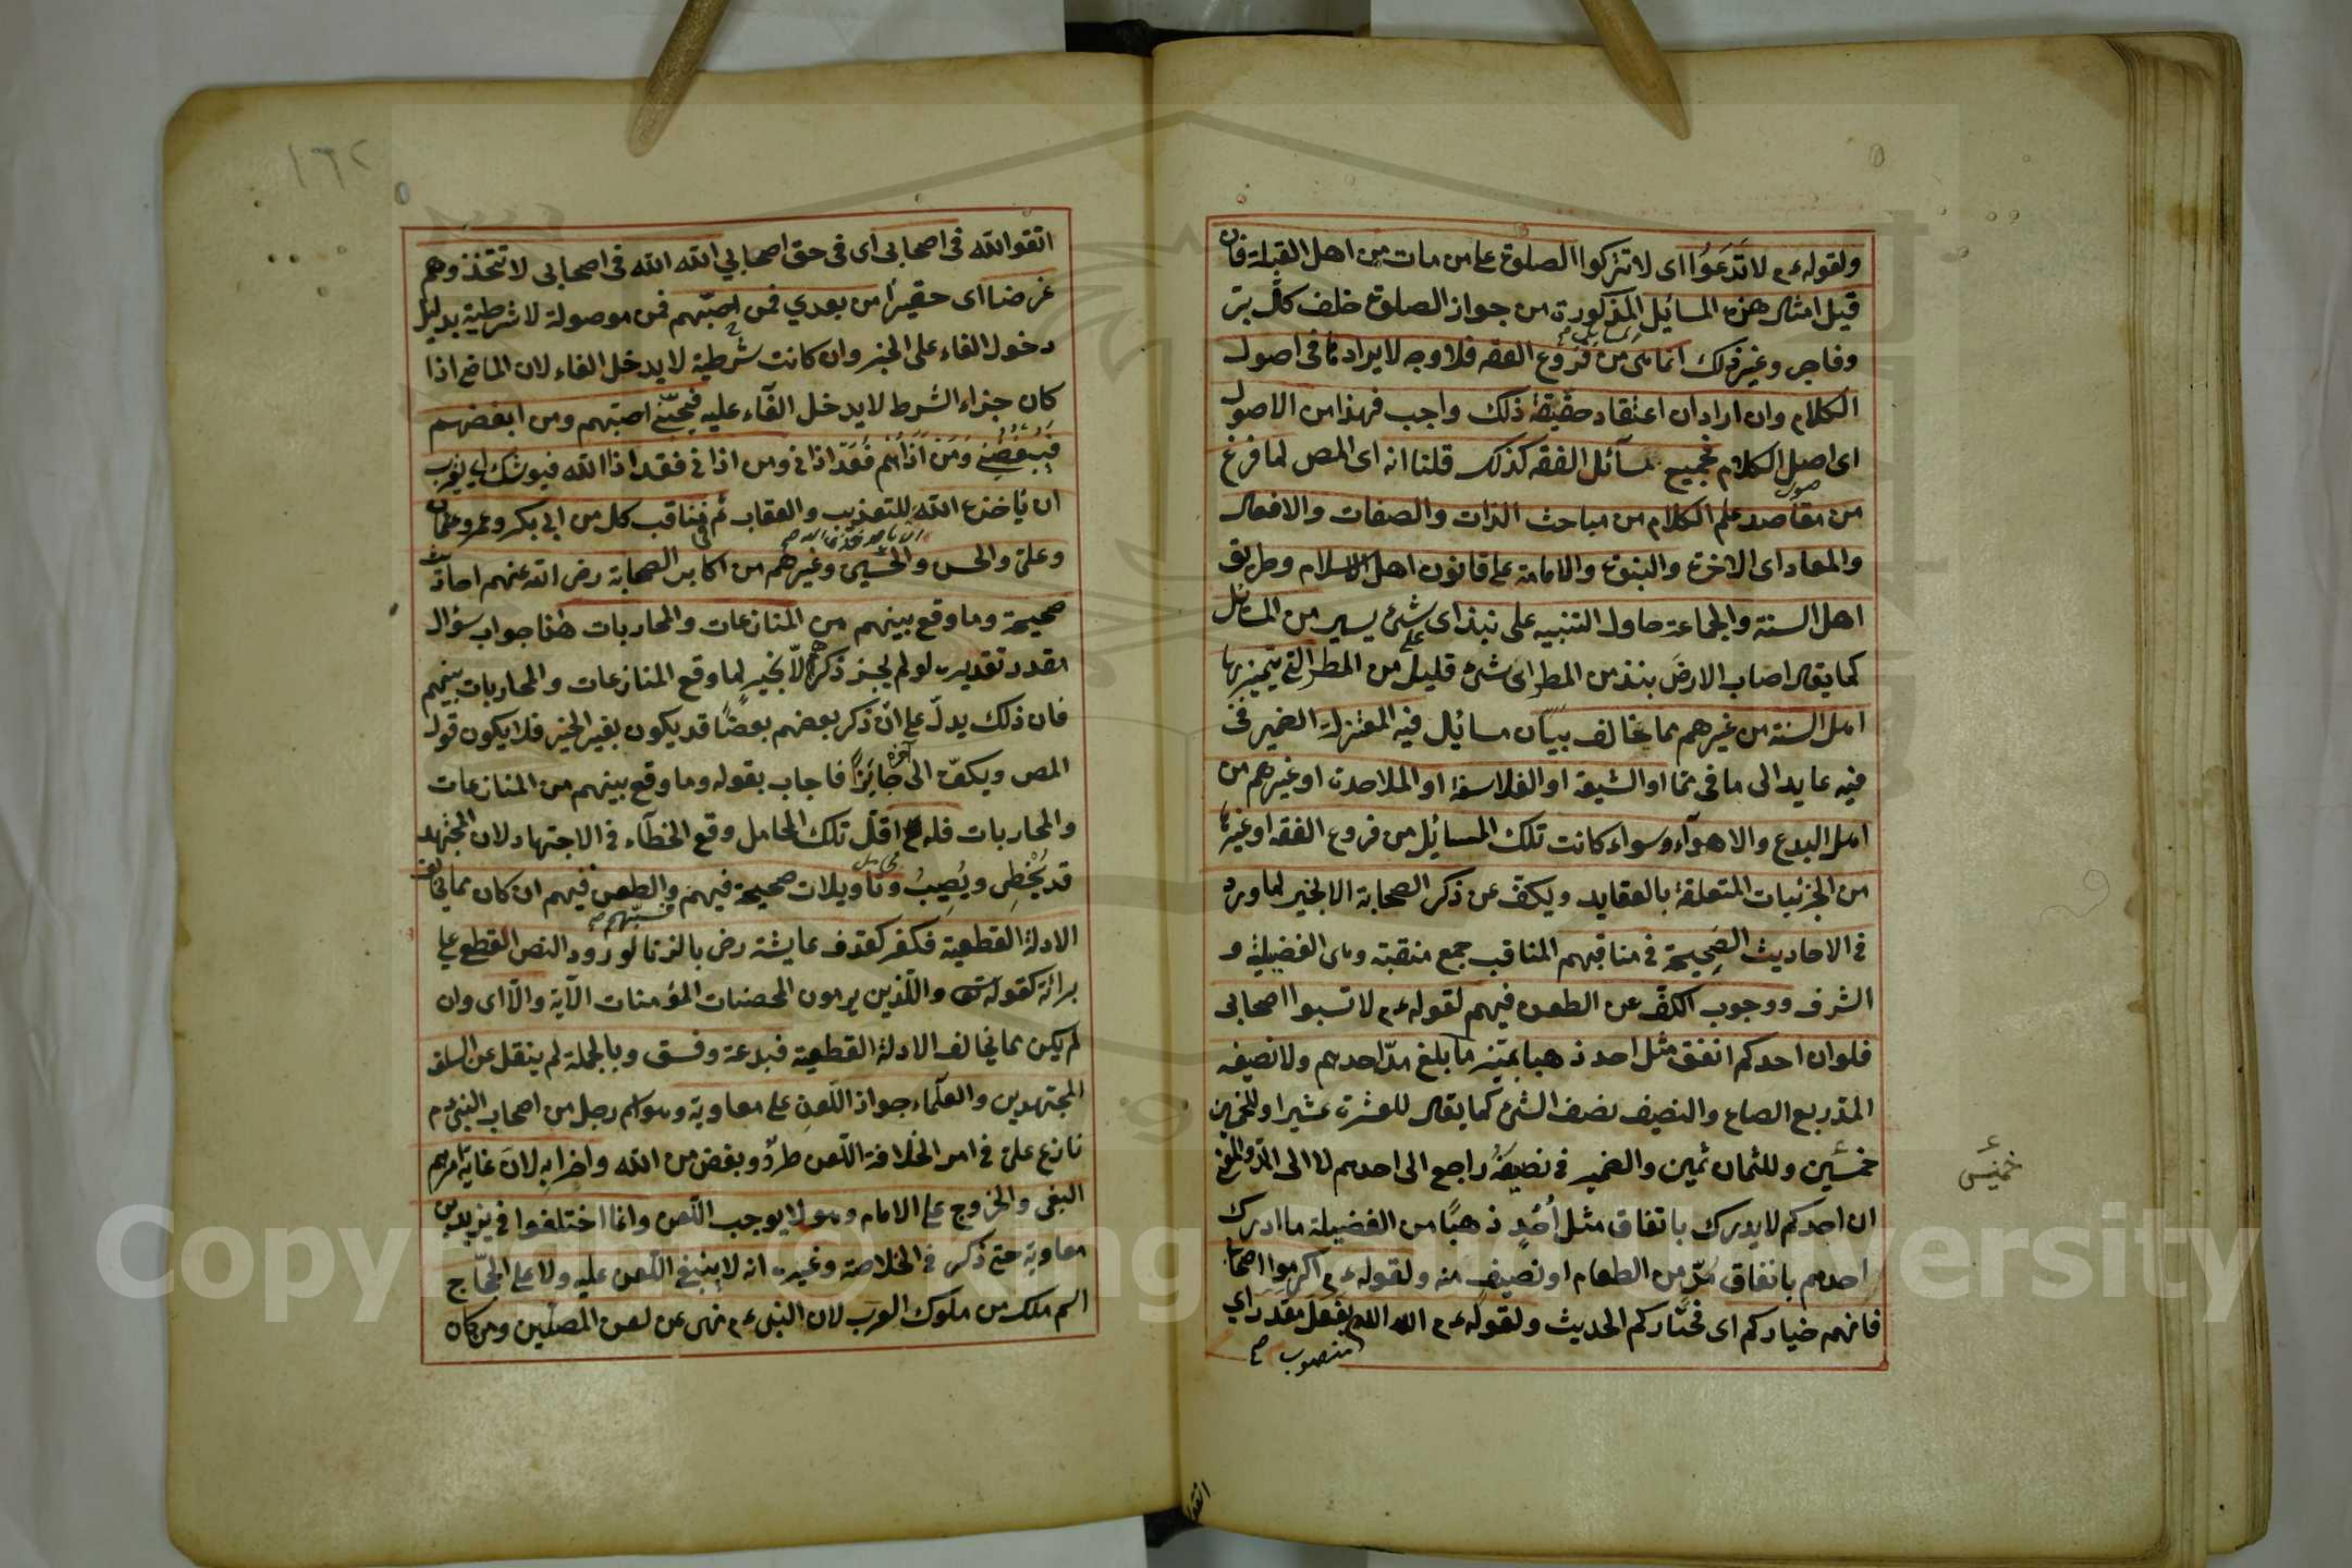 ولقوله عم لا تَدَعُوا اى لا تتركوا الصلوة على من مات من اهل القبلة فان
قيل امثال هذه المسائل المذكورة من جواز الصلوة خلف كل بر
وفاجر وغير ذلك انما هى من فروع الفقه فلا وجه لايرادها فى اصول
الكلام وان اراد ان اعتقاد حقيقة ذلك واجب فهذا من الاصول
اى اصل الكلام فجميع مسآئل الفقه كذلك قلنا انه اى المص لما فرغ
من مقاصد علم الكلام من مباحث الذات والصفات والافعال
والمعاد اى الاخرة والنبوة والامامة على قانون اهل الاسلام وطريق
اهل السنة والجماعة حاول التنبيه على نبذ اى شئ يسير من المسائل
كما يقال اصاب الارض نبذ من المطر اى شئ قليل من المطر التى يتميز بها
اهل السنة من غيرهم مما يخالف بيان مسائل فيه المعتزلة الضمير فى
فيه عايد الى ما فى مما او الشيعة او الفلاسفة او الملاحدة او غيرهم من
اهل البدع والاهوآء وسواء كانت تلك المسائل من فروع الفقه او غيرها
من الجزئيات المتعلقة بالعقايد ويكف عن ذكر الصحابة الا بخير لما ورد
فى الاحاديث الصحيحة فى مناقبهم المناقب جمع منقبة وهى الفضيلة و
الشرف ووجوب الكف عن الطعن فيهم لقوله عم لا تسبوا اصحابى
فلو ان احدكم انفق مثل احد ذهبا تميز ما بلغ مد احدهم ولا نصيفه
المد ربع الصاع والنصيف نصف الشئ كما يقال للعشرة عشير وللخمس
خمسين وللثمان ثمين والضمير فى نصيفه راجع الى احدهم لا الى المد والمعنى
ان احدكم لا يدرك باتفاق مثل اُحُدٍ ذهبًا من الفضيلة ما ادرك
احدهم بانفاق مدٍ من الطعام او نصيف منه ولقوله عم اكرموا اصحابى
فانهم خياركم اى مختاركم الحديث ولقوله عم الله الله بفعل مقدر اى
منصوب صح
خميسٔ
اتقوا الله
اتقوا الله فى اصحابى اى فى حق اصحابي الله الله فى اصحابى لا تتخذوهم
غرضا اى حقيرًا من بعدي فمن احبّهم فمن موصولة لا شرطية بدليل
دخول الفاء على الخبر وان كانت شرطية لا يدخل الفاء لان الماضى اذا
كان جزاء الشرط لا يدخل الفآء عليه فبحبّى احبهم ومن ابغضهم
فببغضى ومن اذاهم فقد اذانى ومن اذانى فقد اذا الله فيوشك اى يقرب
ان ياخذه الله للتعذيب والعقاب ثم فى مناقب كل من ابى بكر وعمر وعثمان
وعلى والحسن والحسين وغيرهم من اكابر الصحابة رض الله عنهم احاديث
صحيحة وما وقع بينهم من المنازعات والمحاربات هذا جواب سؤال
مقدر تقديره لو لم يجز ذكرهم الّا بخير لما وقع المنازعات والمحاربات بينهم
فان ذلك يدلّ على ان ذكر بعضهم بعضًا قد يكون بغير الخير فلا يكون قول
المص ويكفّ الى آخره جائزًا فاجاب بقوله وما وقع بينهم من المنازعات
والمحاربات فله اقلّ تلك المحامل وقع الخطآء فى الاجتهاد لان المجتهد
قد يُخطِى ويُصِيبُ وتأويلات صحيحة فيهم والطعن فيهم ان كان مما يخالف
الادلة القطعية فكفر كقذف عايشة رض بالزنا لورود النص القطع على
برائة كقوله تعالى والّذين يرمون المحصنات المؤمنات الآية والّا اى وان
لم يكن مما يخالف الادلة القطعية فبدعة وفسق وبالجملة لم ينقل عن السلف
المجتهدين والعلمآء جواز اللّعن على معاوية وهو اسم رجل من اصحاب النبى عم
نازع على فى امر الخلافة اللّعن طردٌ وبغض من الله واحزابه لان غاية امرهم
البغى والخروج على الامام وهو لا يوجب اللّعن وانما اختلفوا فى يزيد بن
معاوية حتى ذكر فى الخلاصة وغيره انه لا ينبغى اللّعن عليه ولا على الحجّاج
اسم ملك من ملوك العرب لان النبى عم نهى عن لعن المصلّين ومن كان
١٦٢